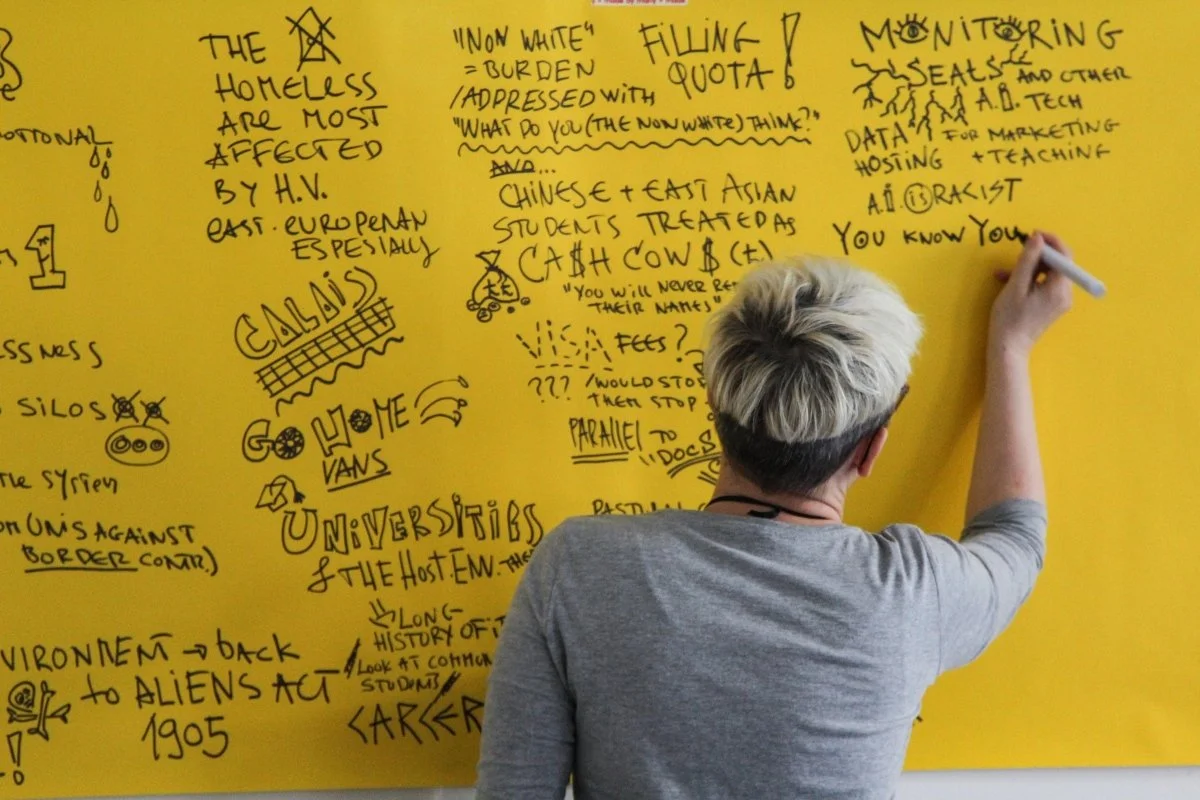 OTIONAL
1
SSNESS
SILOS
THE SYSTEM
UNIS AGAINST
BORDER CONTR.)
VIRONMENT → back
to ALIENS ACT
1905
!
THE
HOMELESS
ARE MOST
AFFECTED
BY H.V.
EAST. EUROPEAN
ESPESIALLY
CALAIS
GO HOME
VANS
UNIVERSITIES
& THE HOST. ENV.
LONG
HISTORY OF
LOOK AT COMMON
STUDENTS
CARCER
"NON WHITE"
= BURDEN
/ADDRESSED WITH
"WHAT DO YOU (THE NON WHITE) THINK?"
FILLING
QUOTA!
AND...
CHINESE + EAST ASIAN
STUDENTS TREATED AS
CA$H COW$ (£)
££
"YOU WILL NEVER RE
THEIR NAMES"
VISA FEES?
??? /WOULD STO
THEM STOP
PARALLEL TO
"DOCS
MONITORING
SEATS AND OTHER
A.I. TECH
DATA FOR MARKETING
HOSTING + TEACHING
A.I. is RACIST
YOU KNOW YOU